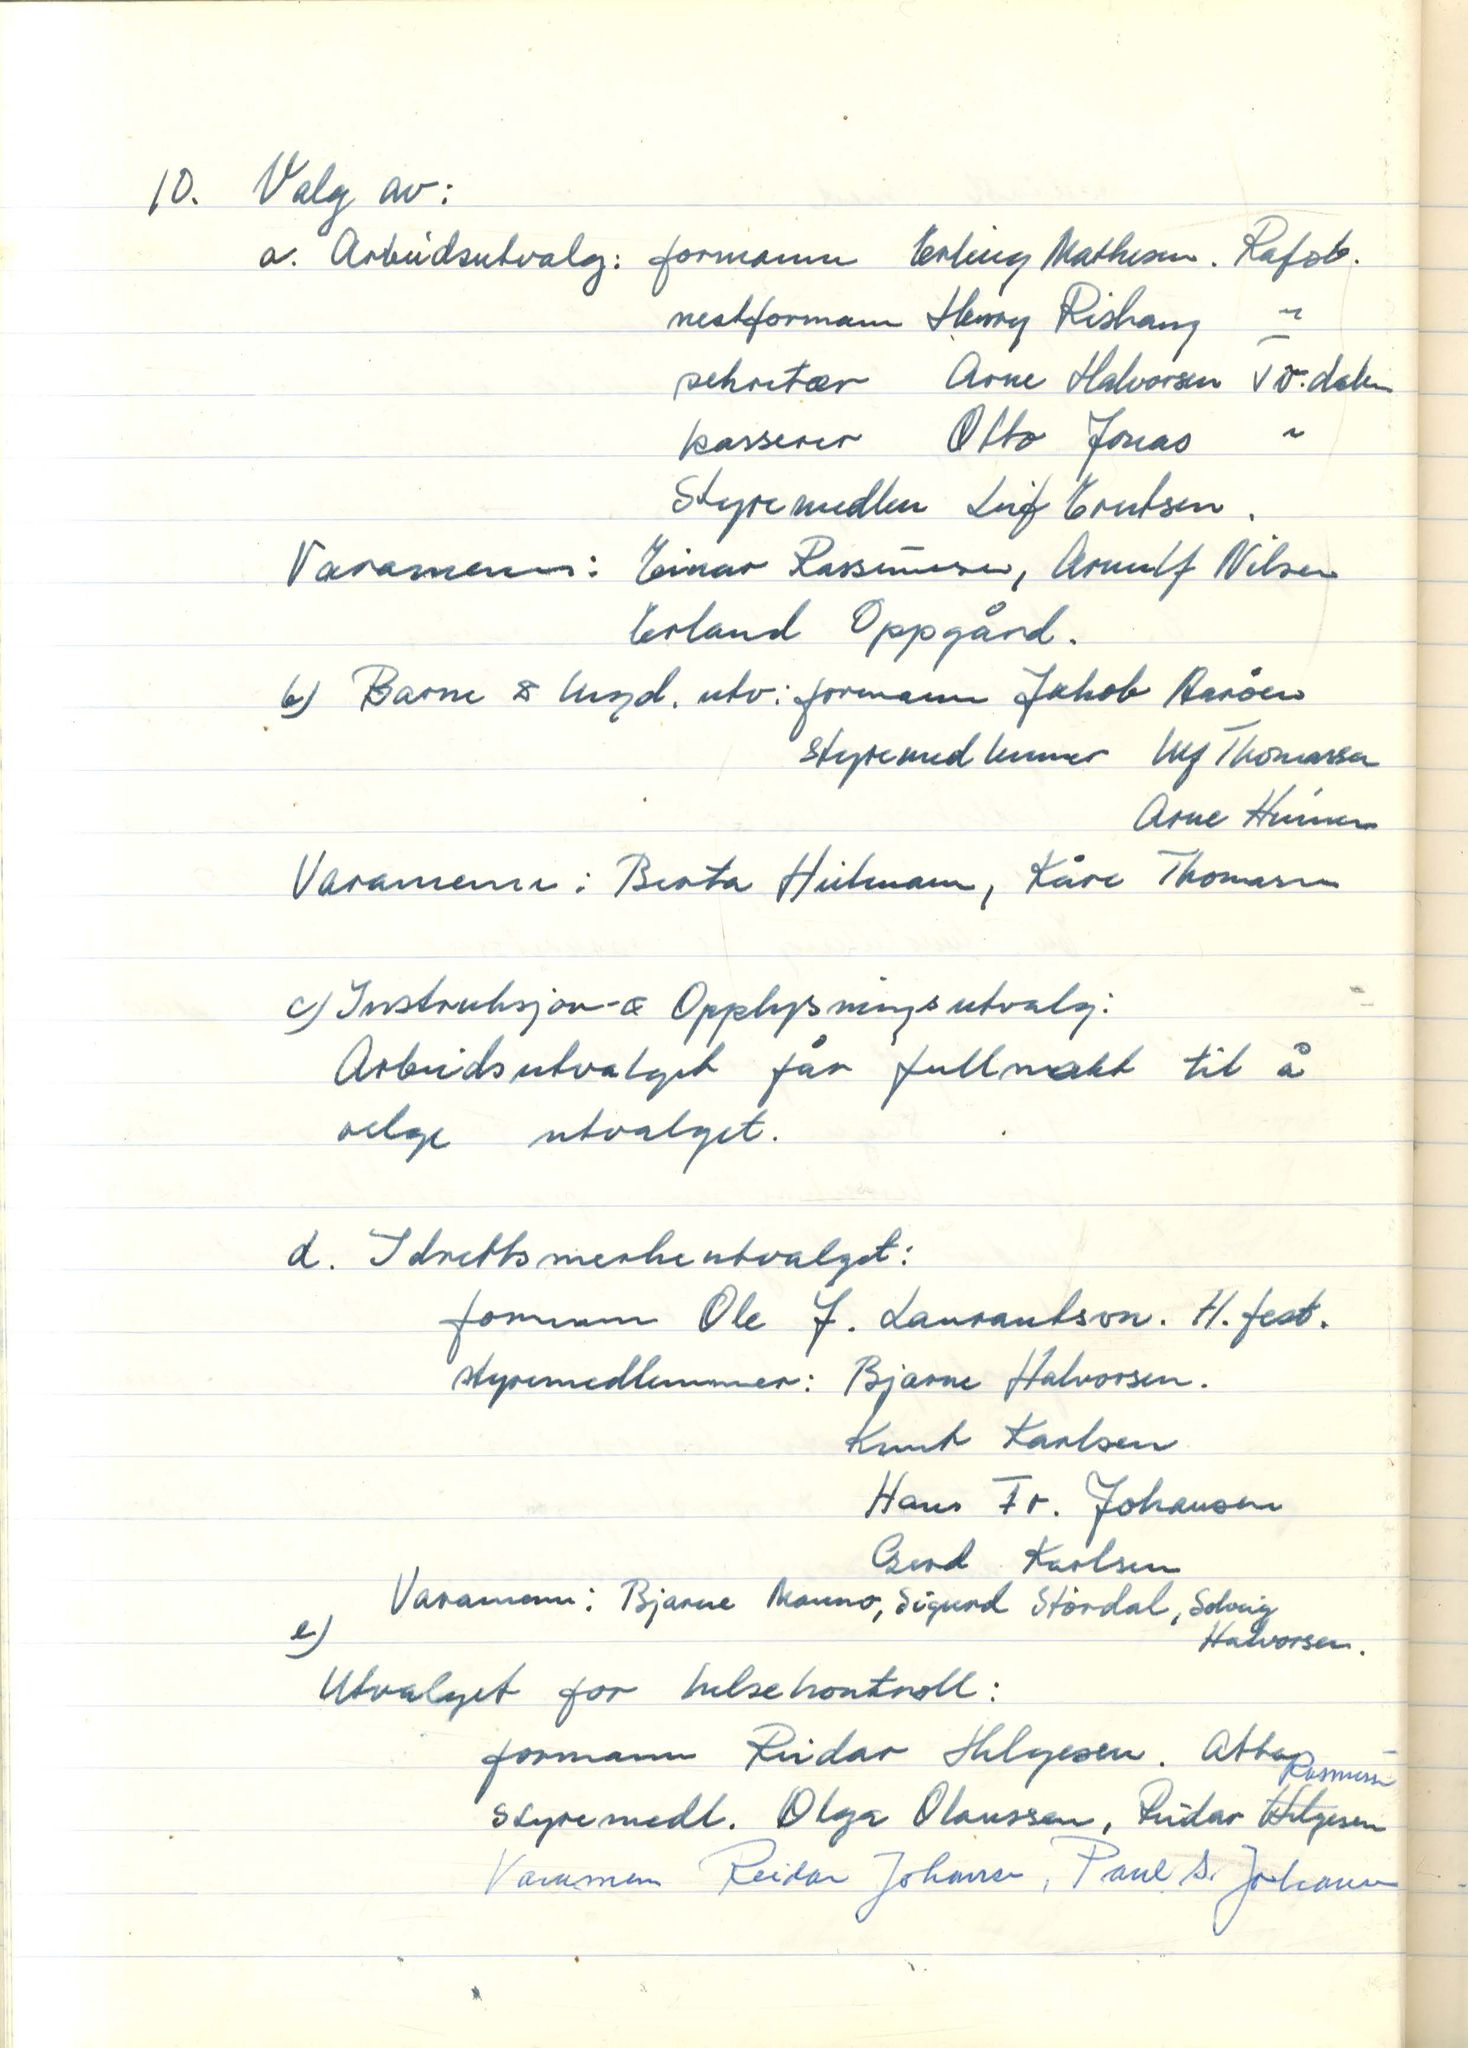 10. Valg av:
a. Arbeidsutvalg: formann Erling Mathisen. Rafsb.
nestformann Henry Rishaug "
sekretær Arne Halvorsen Tv.dalen
kasserer Otto Jonas "
Styremedlem Leif Erntsen.
Varamenn: Einar Rassmusen, Arnulf Nilsen
Erland Oppgård.
b) Barne & Ungd. utv: formann Jakob Aarøen
styremedlemmer Ulf Thomassen
Arne
Varamenn: Berta Heitmann, Kåre Thomasen
c) Instruksjon- & Opplysningsutvalg:
Arbeidsutvalget får fullmakt til å
velge utvalget.
d. Idrettsmerkeutvalget:
formann Ole J. Laurantson. H.fest.
styremedlemmer: Bjarne Halvorsen.
Knut Karlsen
Hans Fr. Johansen
Gerd Karlsen
Varamenn: Bjarne Mauno, Sigurd Stördal, Solveig
Halvorsen.
e)
Utvalget for helsekontroll:
formann Reidar Helgesen. Alta
Rasmussen
styremedl. Olga Olaussen, Reidar Helgesen
Varamenn Reidar Johansen, Paul S. Johansen